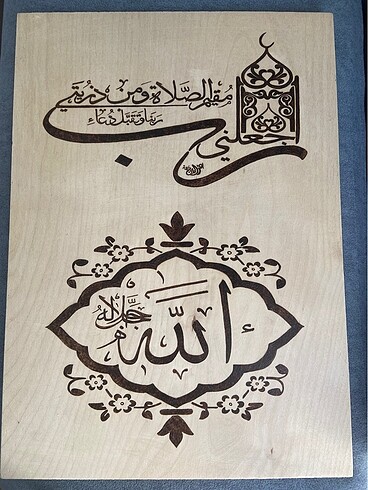 رب اجعلني
مقيم الصلاة ومن ذريتي
ربنا وتقبل دعاء
الله
جل جلاله